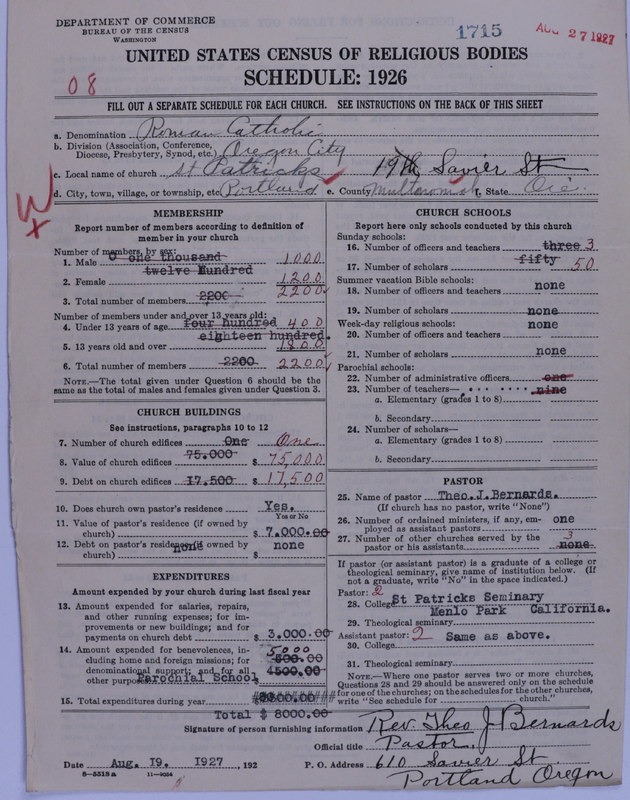 DEPARTMENT OF COMMERCE
BUREAU OF THE CENSUS
WASHINGTON
1715
AUG 27 1927
UNITED STATES CENSUS OF RELIGIOUS BODIES
SCHEDULE: 1926
08
FILL OUT A SEPARATE SCHEDULE FOR EACH CHURCH. SEE INSTRUCTIONS ON THE BACK OF THIS SHEET
a. Denomination Roman Catholic
b. Division (Association, Conference, Diocese, Presbytery, Synod, etc.) Oregon City
c. Local name of church St Patricks 19th Savier St
d. City, town, village, or township, etc. Portland e. County Multnomah f. State Ore.
MEMBERSHIP
Report number of members according to definition of
member in your church
Number of members, by sex:
one thousand
1. Male 1000
twelve Hundred
2. Female 1200
3. Total number of members 2200 2200
Number of members under and over 13 years old:
4. Under 13 years of age four hundred 400
eighteen hundred.
5. 13 years old and over 1800
6. Total number of members 2200 2200
NOTE.—The total given under Question 6 should be
same as the total of males and females given under Question 3.
CHURCH BUILDINGS
See instructions, paragraphs 10 to 12
7. Number of church edifices One One
8. Value of church edifices 75.000 $ 75,000
9. Debt on church edifices 17.500 $ 17,500
10. Does church own pastor's residence Yes.
Yes or No
11. Value of pastor's residence (if owned by
church) $ 7.000.00
12. Debt on pastor's residence (if owned by
church) none $ none
EXPENDITURES
Amount expended by your church during last fiscal year
13. Amount expended for salaries, repairs,
and other running expenses; for im-
provements or new buildings; and for
payments on church debt $ 3.000.00
14. Amount expended for benevolences, in-
cluding home and foreign missions; for
denominational support; and for all
other purposes Parochial School
5000
500.00
4500.00
15. Total expenditures during year
Total $ 8000.00
CHURCH SCHOOLS
Report here only schools conducted by this church
Sunday schools:
16. Number of officers and teachers three 3
17. Number of scholars fifty 50
Summer vacation Bible schools:
18. Number of officers and teachers none
19. Number of scholars none
Week-day religious schools: none
20. Number of officers and teachers
21. Number of scholars none
Parochial schools:
22. Number of administrative officers one
23. Number of teachers— nine
a. Elementary (grades 1 to 8)
b. Secondary
24. Number of scholars—
a. Elementary (grades 1 to 8)
b. Secondary
PASTOR
25. Name of pastor Theo.J.Bernards.
(If church has no pastor, write "None")
26. Number of ordained ministers, if any, em-
ployed as assistant pastors one
27. Number of other churches served by the
pastor or his assistants 3 none.
If pastor (or assistant pastor) is a graduate of a college or
theological seminary, give name of institution below. (If
not a graduate, write "No" in the space indicated.)
Pastor: 2
28. College St Patricks Seminary
Menlo Park California.
29. Theological seminary
Assistant pastor: 2 Same as above.
30. College
31. Theological seminary
NOTE.—Where one pastor serves two or more churches,
Questions 28 and 29 should be answered only on the schedule
for one of the churches; on the schedules for the other churches,
write "See schedule for church."
Signature of person furnishing information Rev. Theo J Bernards
Official title Pastor.
Date Aug. 19. 1927, 192 P. O. Address 610 Savier St
Portland Oregon
8—5518a 11—9054